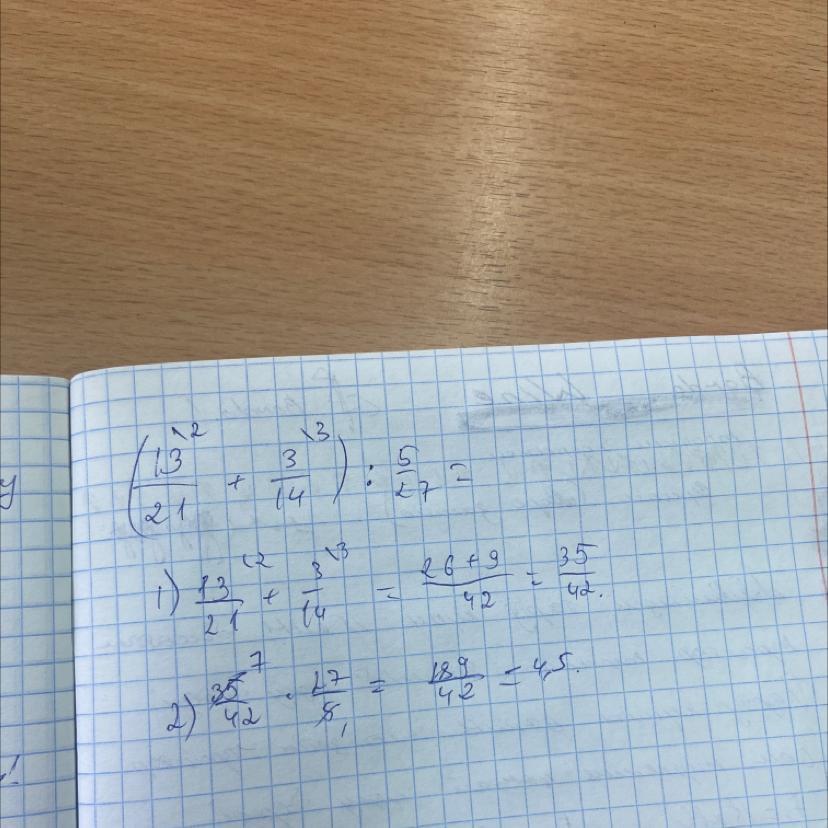 (13/21 \2 + 3/14 \3) : 5/27 =
1) 13/21 \2 + 3/14 \3 = 26+9/42 = 35/42.
2) 35/42 7 · 27/5 1 = 189/42 = 4,5.